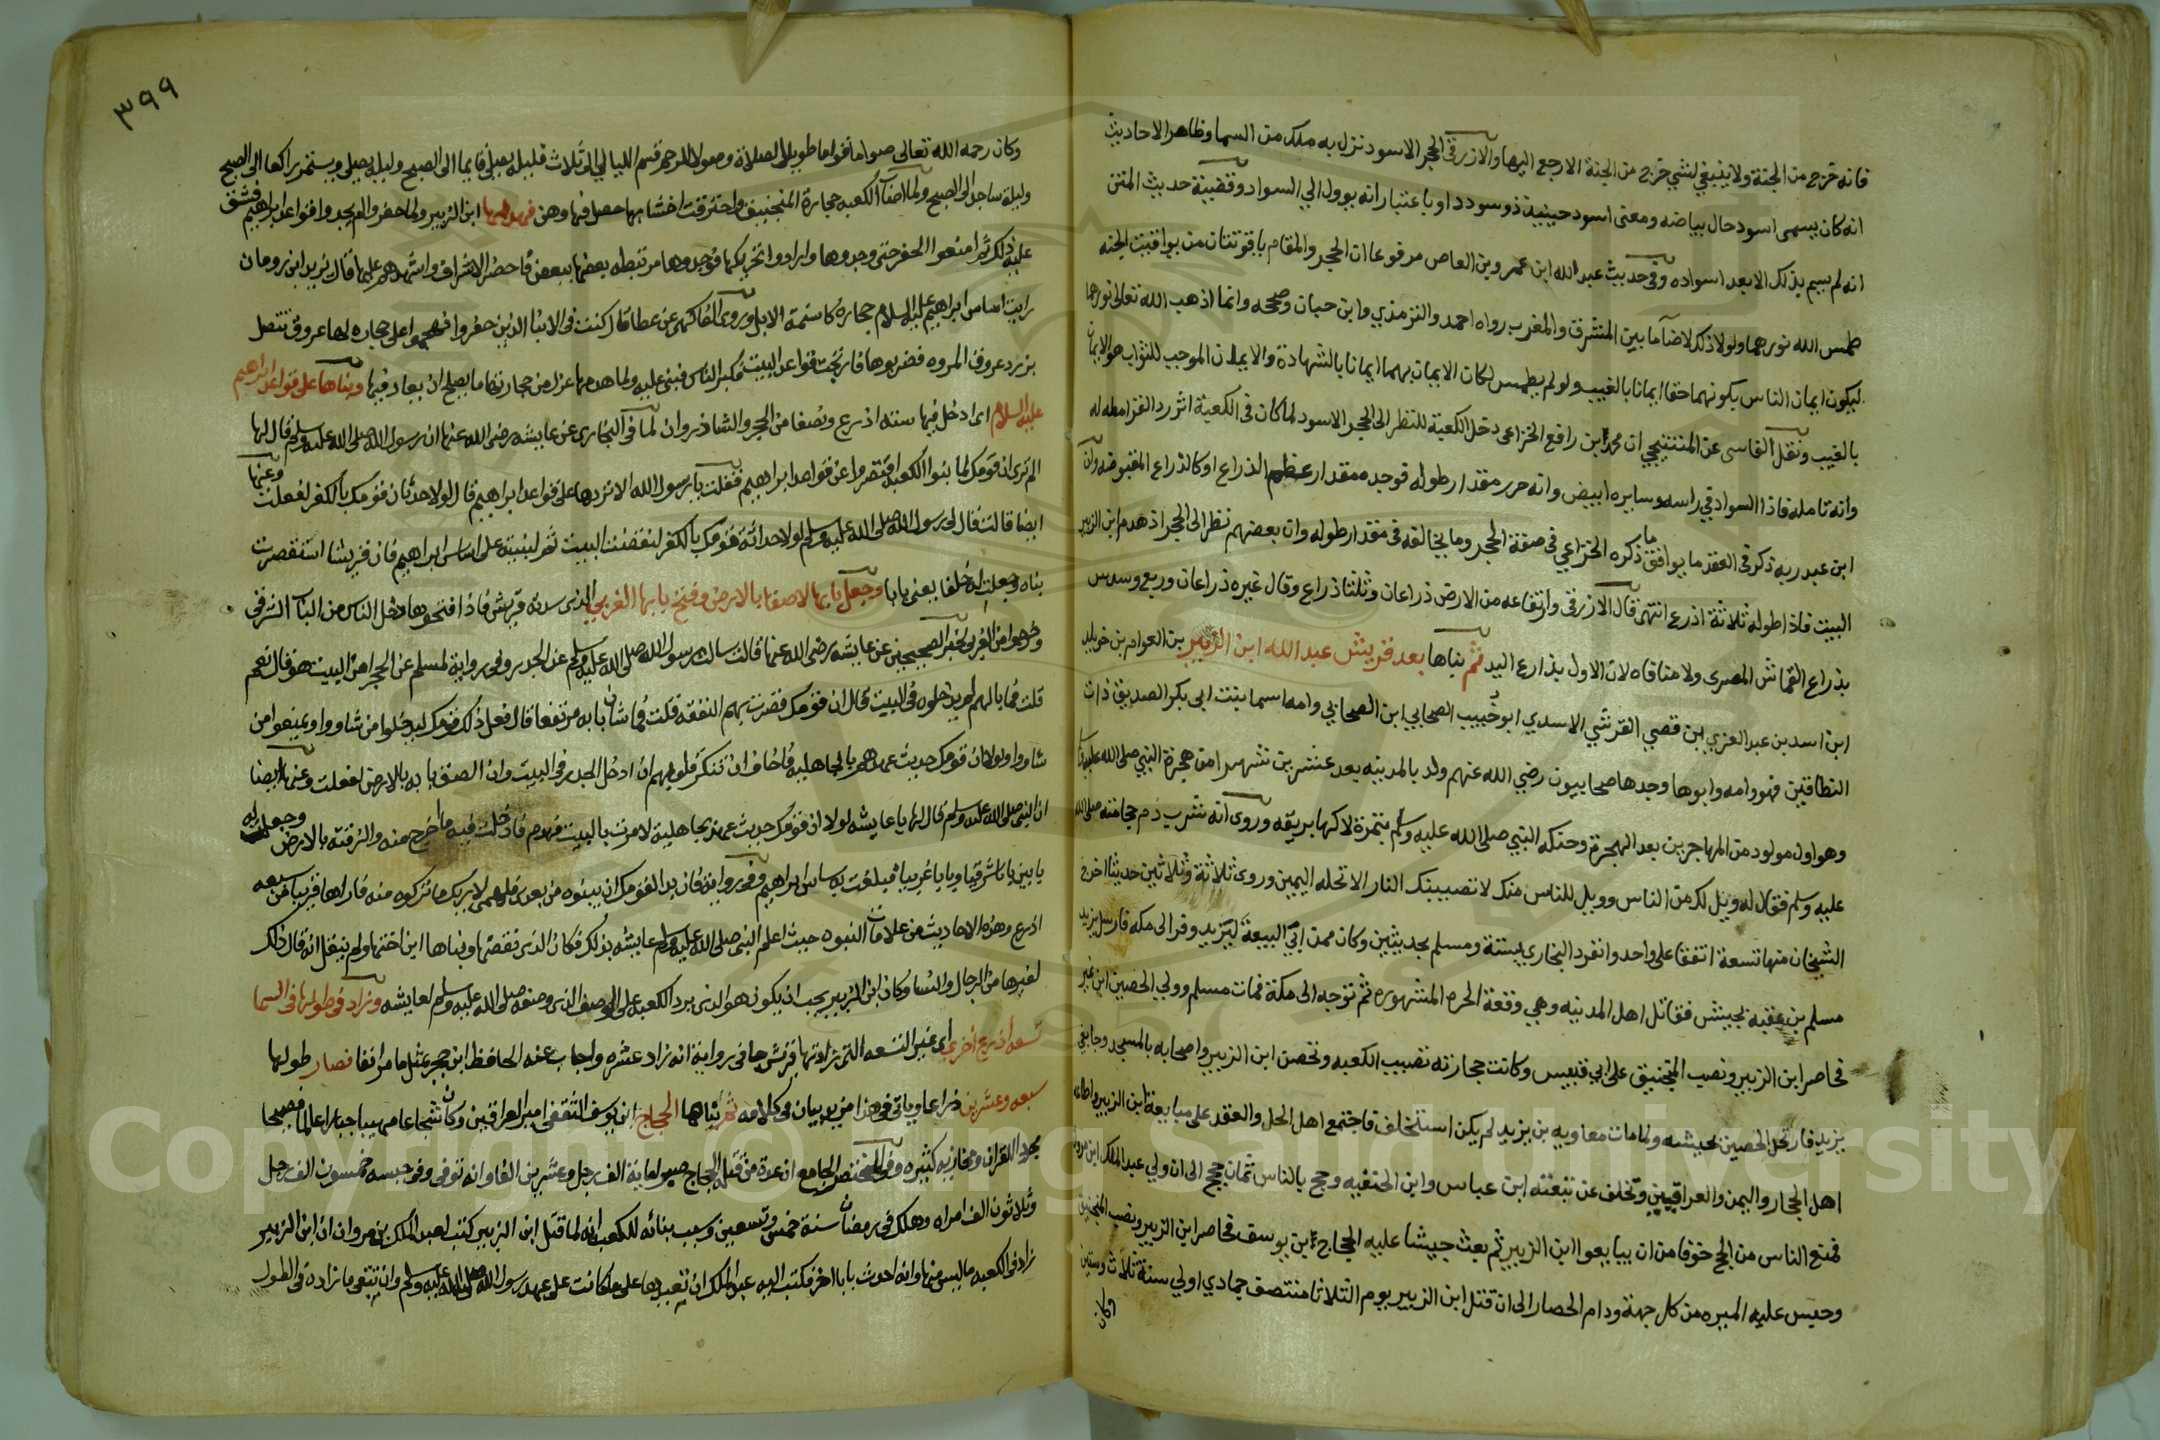 فانه خرج من الجنة ولا ينبغي لشي خرج من الجنة الا رجع اليها والازرقي الحجر الاسود نزل به ملك من السما وظاهر الاحاديث
انه كان يسمى اسود حال بياضه ومعنى اسود حينيذ ذو سودد او باعتبار انه يوول الي السواد وقضية حديث المتن
انه لم يسم بذلك الا بعد اسواده وفي حديث عبد الله ابن عمرو بن العاص مرفوعا ان الحجر والمقام ياقوتتان من يواقيت الجنه
طمس الله نورهما ولولا ذلك لاضآ ما بين المشرق والمغرب رواه احمد والترمذي وابن حبان وصححه وانما اذهب الله تعالى نورهما
ليكون ايمان الناس بكونهما حقا ايمانا بالغيب ولو لم يطمس لكان الايمان بهما ايمانا بالشهادة والايمان الموجب للثواب هو الايمان
بالغيب ونقل الفاسى عن المسبحي ان محمد ابن رافع الخزاعى دخل الكعبة للنظر الى الحجر الاسود لما كان في الكعبة اثر رد القرامطه له
وانه تامله فاذا السواد في راسه وسايره ابيض وانه حرر مقدار طوله فوجده مقدار عظم الذراع او كالذراع المقبوضه وان
ابن عبد ربه ذكر في العقد ما يوافق ما ذكره الخزاعي في صفة الحجر وما يخالفه في مقدار طوله وان بعضهم نظر الى الحجر اذ هدم ابن الزبير
البيت فاذا طوله ثلاثة اذرع انتهى قال الازرقي وارتفاعه من الارض ذراعان وثلثا ذراع وقال غيره ذراعان وربع وسدس
بذراع القماش المصرى ولا منافاه لان الاول بذارع اليد ثم بناها بعد قريش عبد الله ابن الزبير بن العوام بن خويلد
ابن اسد بن عبد العزي بن قصي القرشي الاسدي ابو خبيب الصحابي ابن الصحابي وامه اسما بنت ابى بكر الصديق ذات
النطاقين فهو وامه وابوها وجدها صحابيون رضي الله عنهم ولد بالمدينه بعد عشرين شهرا من هجرة النبي صلى الله عليه وسلم
وهو اول مولود من المهاجرين بعد الهجرة وحنكه النبي صلى الله عليه وسلم بتمرة لاكها بريقه وروى انه شرب دم حجامته صلى الله
عليه وسلم فقال له ويل لك من الناس وويل للناس منك لا تصيبك النار الا تحله اليمين وروى ثلاثة وثلاثين حديثا اخرج
الشيخان منها تسعة اتفقا على واحد وانفرد البخاري بستة ومسلم بحديثين وكان ممن ابى البيعة ليزيد وفر الى مكه فارسل يزيد
مسلم بن عقبه بجيش فقاتل اهل المدينه وهي وقعة الحره المشهوره ثم توجه الى مكة فمات مسلم وولي الحصين ابن نمير
فحاصر ابن الزبير ونصب المنجنيق على ابي قبيس وكانت حجارته تصيب الكعبه وتحصن ابن الزبير واصحابه بالمسجد وجا نعي
يزيد فارتحل الحصين بجيشه ولما مات معاويه بن يزيد لم يكن استخلف فاجتمع اهل الحل والعقد على مبايعة ابن الزبير واطاعه
اهل الحجاز واليمن والعراقيين وتخلف عن تبعته ابن عباس وابن الحنفيه وحج بالناس ثمان حجج الى ان ولي عبد الملك ابن مروان
فمنع الناس من الحج خوفا من ان يبايعوا ابن الزبير ثم بعث جيشا عليه الحجاج بن يوسف فحاصر ابن الزبير ونصب المنجنيق
وحبس عليه الميره من كل جهة ودام الحصار الى ان قتل ابن الزبير يوم الثلاثا منتصف جمادي اولي سنة ثلاث وسبعين
وكان
٣٩٩
وكان رحمه الله تعالى صواما قواما طويل الصلاة وصولا للرحم قسم الليالي الى ثلاث فليله يصلى قايما الى الصبح وليله يصلى ويستمر راكعا الى الصبح
وليلة ساجدا الى الصبح ولما اصاب الكعبه حجارة المنجنيق واحترقت اخشابها معما فيها وهن فهدمها ابن الزبير ولما حفروا لم يجدوا قواعد ابراهيم فشق
عليه ذلك ثم امنعوا الحفر حتى وجدوها وارادوا تحريكها فوجدوها مرتبطه بعضها ببعض فاحضر الاشراف واشهدهم عليها قال يزيد ابن رومان
رايت اساس ابراهيم عليه السلام حجاره كاسنمة الابل وروى الفاكهى عن عطا قال كنت في الابنا الذين حفروا فهجموا على حجاره لها عروق تتصل
بزرد عروق المروه فضربوها فارتجت قواعد البيت فكبر الناس فبنى عليه ولما هدمها عزل من حجارتها ما يصلح ان يعاد فيها وبناها على قواعد ابراهيم
عليه السلام اى ادخل فيها ستة اذرع ونصفا من الحجر والشاذروان لما في البخارى عن عايشه رضى الله عنها ان رسول الله صلى الله عليه وسلم قال لها
الم ترى ان قومك لما بنوا الكعبه اقتصروا عن قواعد ابراهيم فقلت يا رسول الله الا تردها على قواعد ابراهيم قال لولا حدثان قومك بالكفر لفعلت وعنها
ايضا قالت قال لى رسول الله صلى الله عليه وسلم لولا حداثة قومك بالكفر لنقضت البيت ثم لبنيته على اساس ابراهيم فان قريشا استقصرت
بناه وجعلت له خلفا يعنى بابا وجعل بابها لاصقا بالارض وفتح بابها الغربي الذى سده قريش فاذا فتحوها دخل الناس من الباب الشرقي
وخرجوا من الغربى لخبر الصحيحين عن عايشه رضى الله عنها قالت سالت رسول الله صلى الله عليه وسلم عن الجدر وفي رواية لمسلم عن الحجر امن البيت هو قال نعم
قلت فما بالهم لم يدخلوه في البيت قال ان قومك قصرت بهم النفقه قلت فما شان بابه مرتفعا قال فعل ذلك قومك ليدخلوا من شاوا ويمنعوا من
شاوا ولولا ان قومك حديث عهدهم بالجاهليه فاخاف ان تنكر قلوبهم ان ادخل الجدر في البيت وان الصق بابه بالارض لفعلت وعنها ايضا
ان النبي صلى الله عليه وسلم قال لها يا عايشه لولا ان قومك حديث عهد بجاهلية لامرت بالبيت فهدم فادخلت فيه ما اخرج منه والزقته بالارض وجعلت له
بابين بابا شرقيا وبابا غربيا فبلغت به اساس ابراهيم وفي رواية فان بدا لقومك ان يبنوه من بعدى فهلمى لاريك ما تركوه منه فاراها قريبا من سبعه
اذرع وهذه الاحاديث من علامات النبوه حيث اعلم النبى صلى الله عليه وسلم عايشه بذلك فكان الذى نقضها وبناها ابن اختها ولم ينقل انه قال ذلك
لغيرها من الرجال والنسا وكان ابن الزبير يجب ان يكون هو الذى يرد الكعبه على الوصف الذى وصفه صلى الله عليه وسلم لعايشه وزاد في طولها في السما
تسعه اذرع اخري اي غير التسعه التى زادتها قريش وجا فى رواية انه زاد عشره واجاب عنه الحافظ ابن حجر بمثل ما مر انفا فصار طولها
سبعه وعشرين ذراعا وياتى في هذا مزيد بيان في كلامه ثم بناها الحجاج ابن يوسف الثقفى امير العراقين وكان شجاعا مهيبا جبارا عالما فصيحا
مجودا للقران ومخازيه كثيره وفي المختصر الجامع ان عدة من قتله الحجاج صبرا ماية الف رجل وعشرين الفا وانه توفى وفى حبسه خمسون الف رجل
وثلاثون الف امراه وهلك في رمضان سنة خمس وتسعين وسبب بنائه للكعبه انه لما قتل ابن الزبير كتب لعبد الملك بن مروان ان ابن الزبير
زاد في الكعبه ما ليس منها وانه احدث بابا اخر فكتب اليه عبد الملك ان تعيدها على ما كانت على عهد رسول الله صلى الله عليه وسلم وان تبقى ما زاده في الطول
Copyright © King Saud University